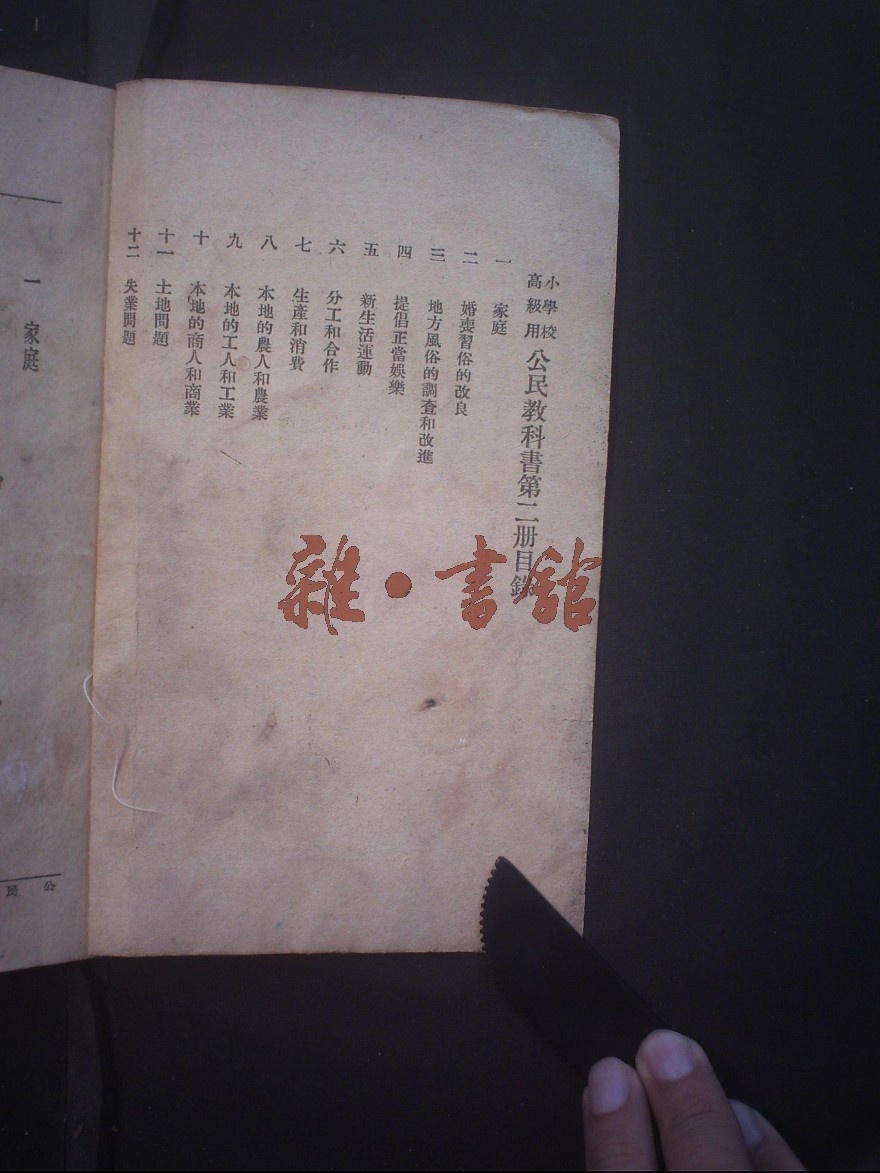 小學校
高級用
公民教科書第二册目錄
一 家庭
二 婚喪習俗的改良
三 地方風俗的調查和改進
四 提倡正當娛樂
五 新生活運動
六 分工和合作
七 生產和消費
八 本地的農人和農業
九 本地的工人和工業
十 本地的商人和商業
十一 土地問題
十二 失業問題
一 家庭
公民
雜·書館